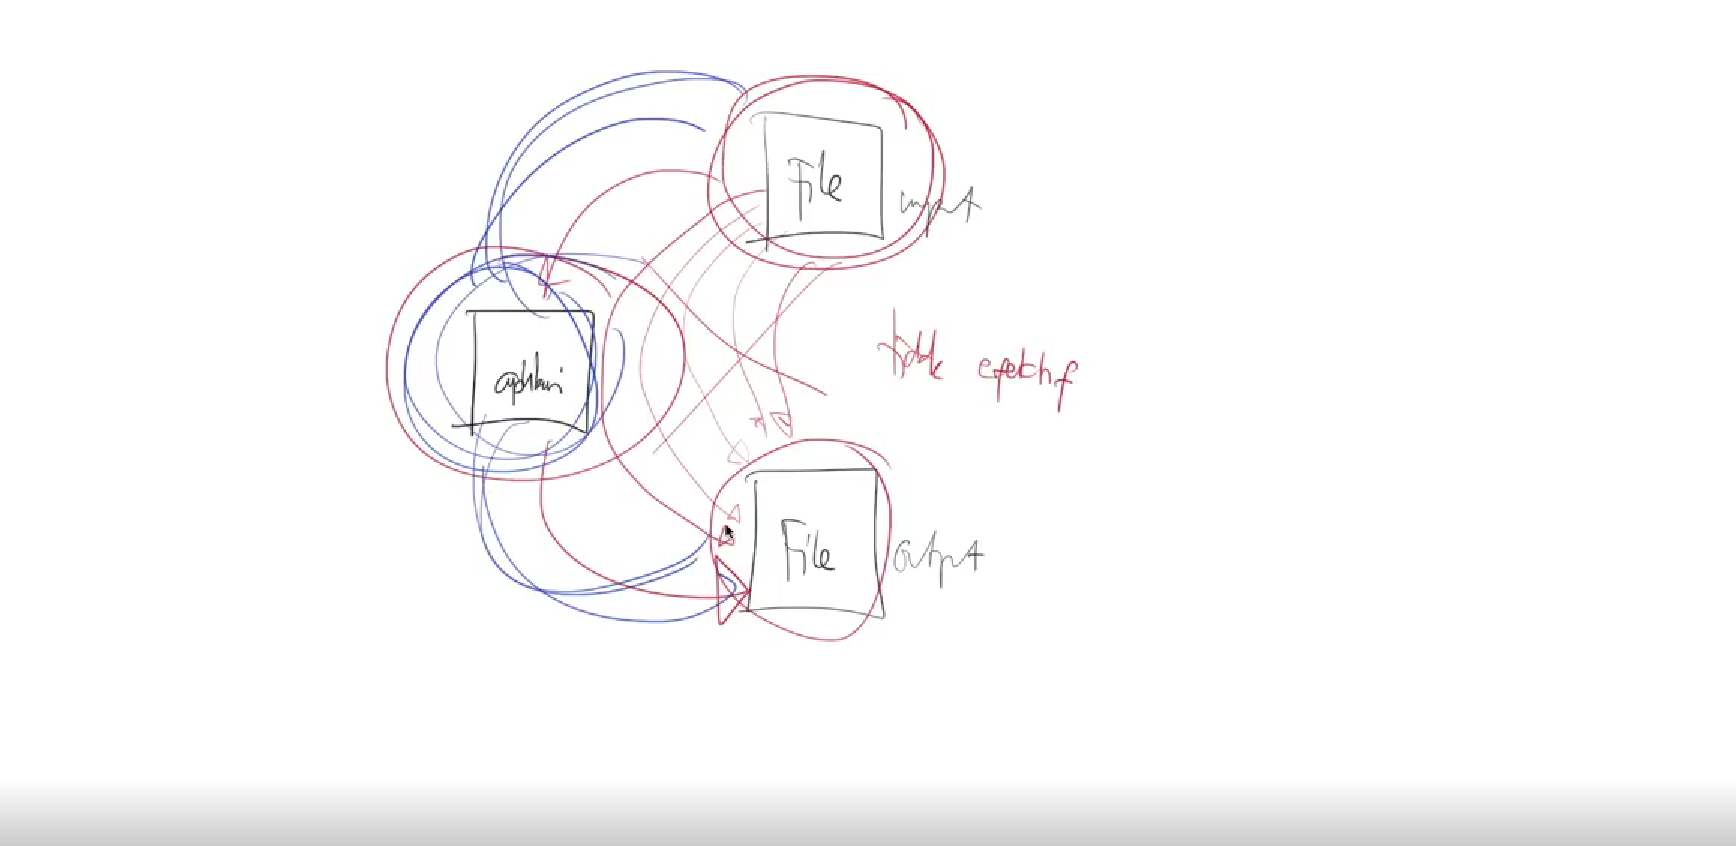 File
input
aplikasi
tidak efektif
File
output